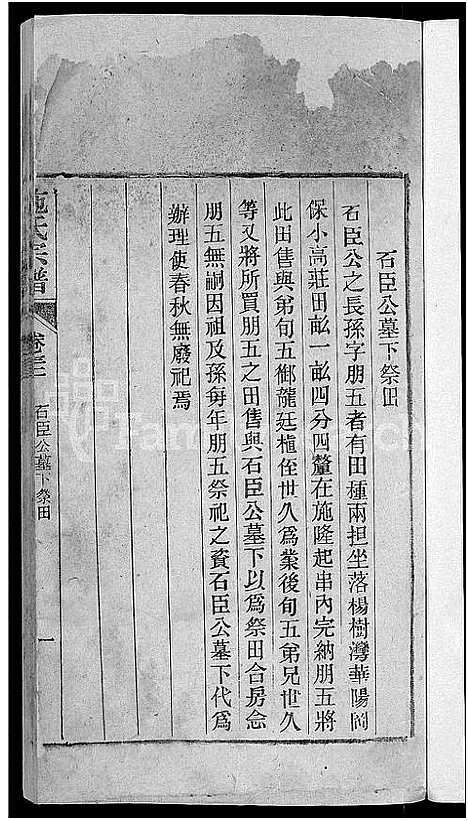 石臣公墓下祭田
石臣公之長孫字朋五者有田種兩担坐落楊樹灣華陽岡
保小高莊田畝一畝四分四釐在施隆起串內完納朋五將
此田售與弟旬五御龍廷植侄世久為業後旬五弟兄世久
等又將所買朋五之田售與石臣公墓下以為祭田合房念
朋五無嗣因祖及孫每年朋五祭祀之資石臣公墓下代為
辦理使春秋無廢祀焉
施氏宗譜
卷三
石臣公墓下祭田
一